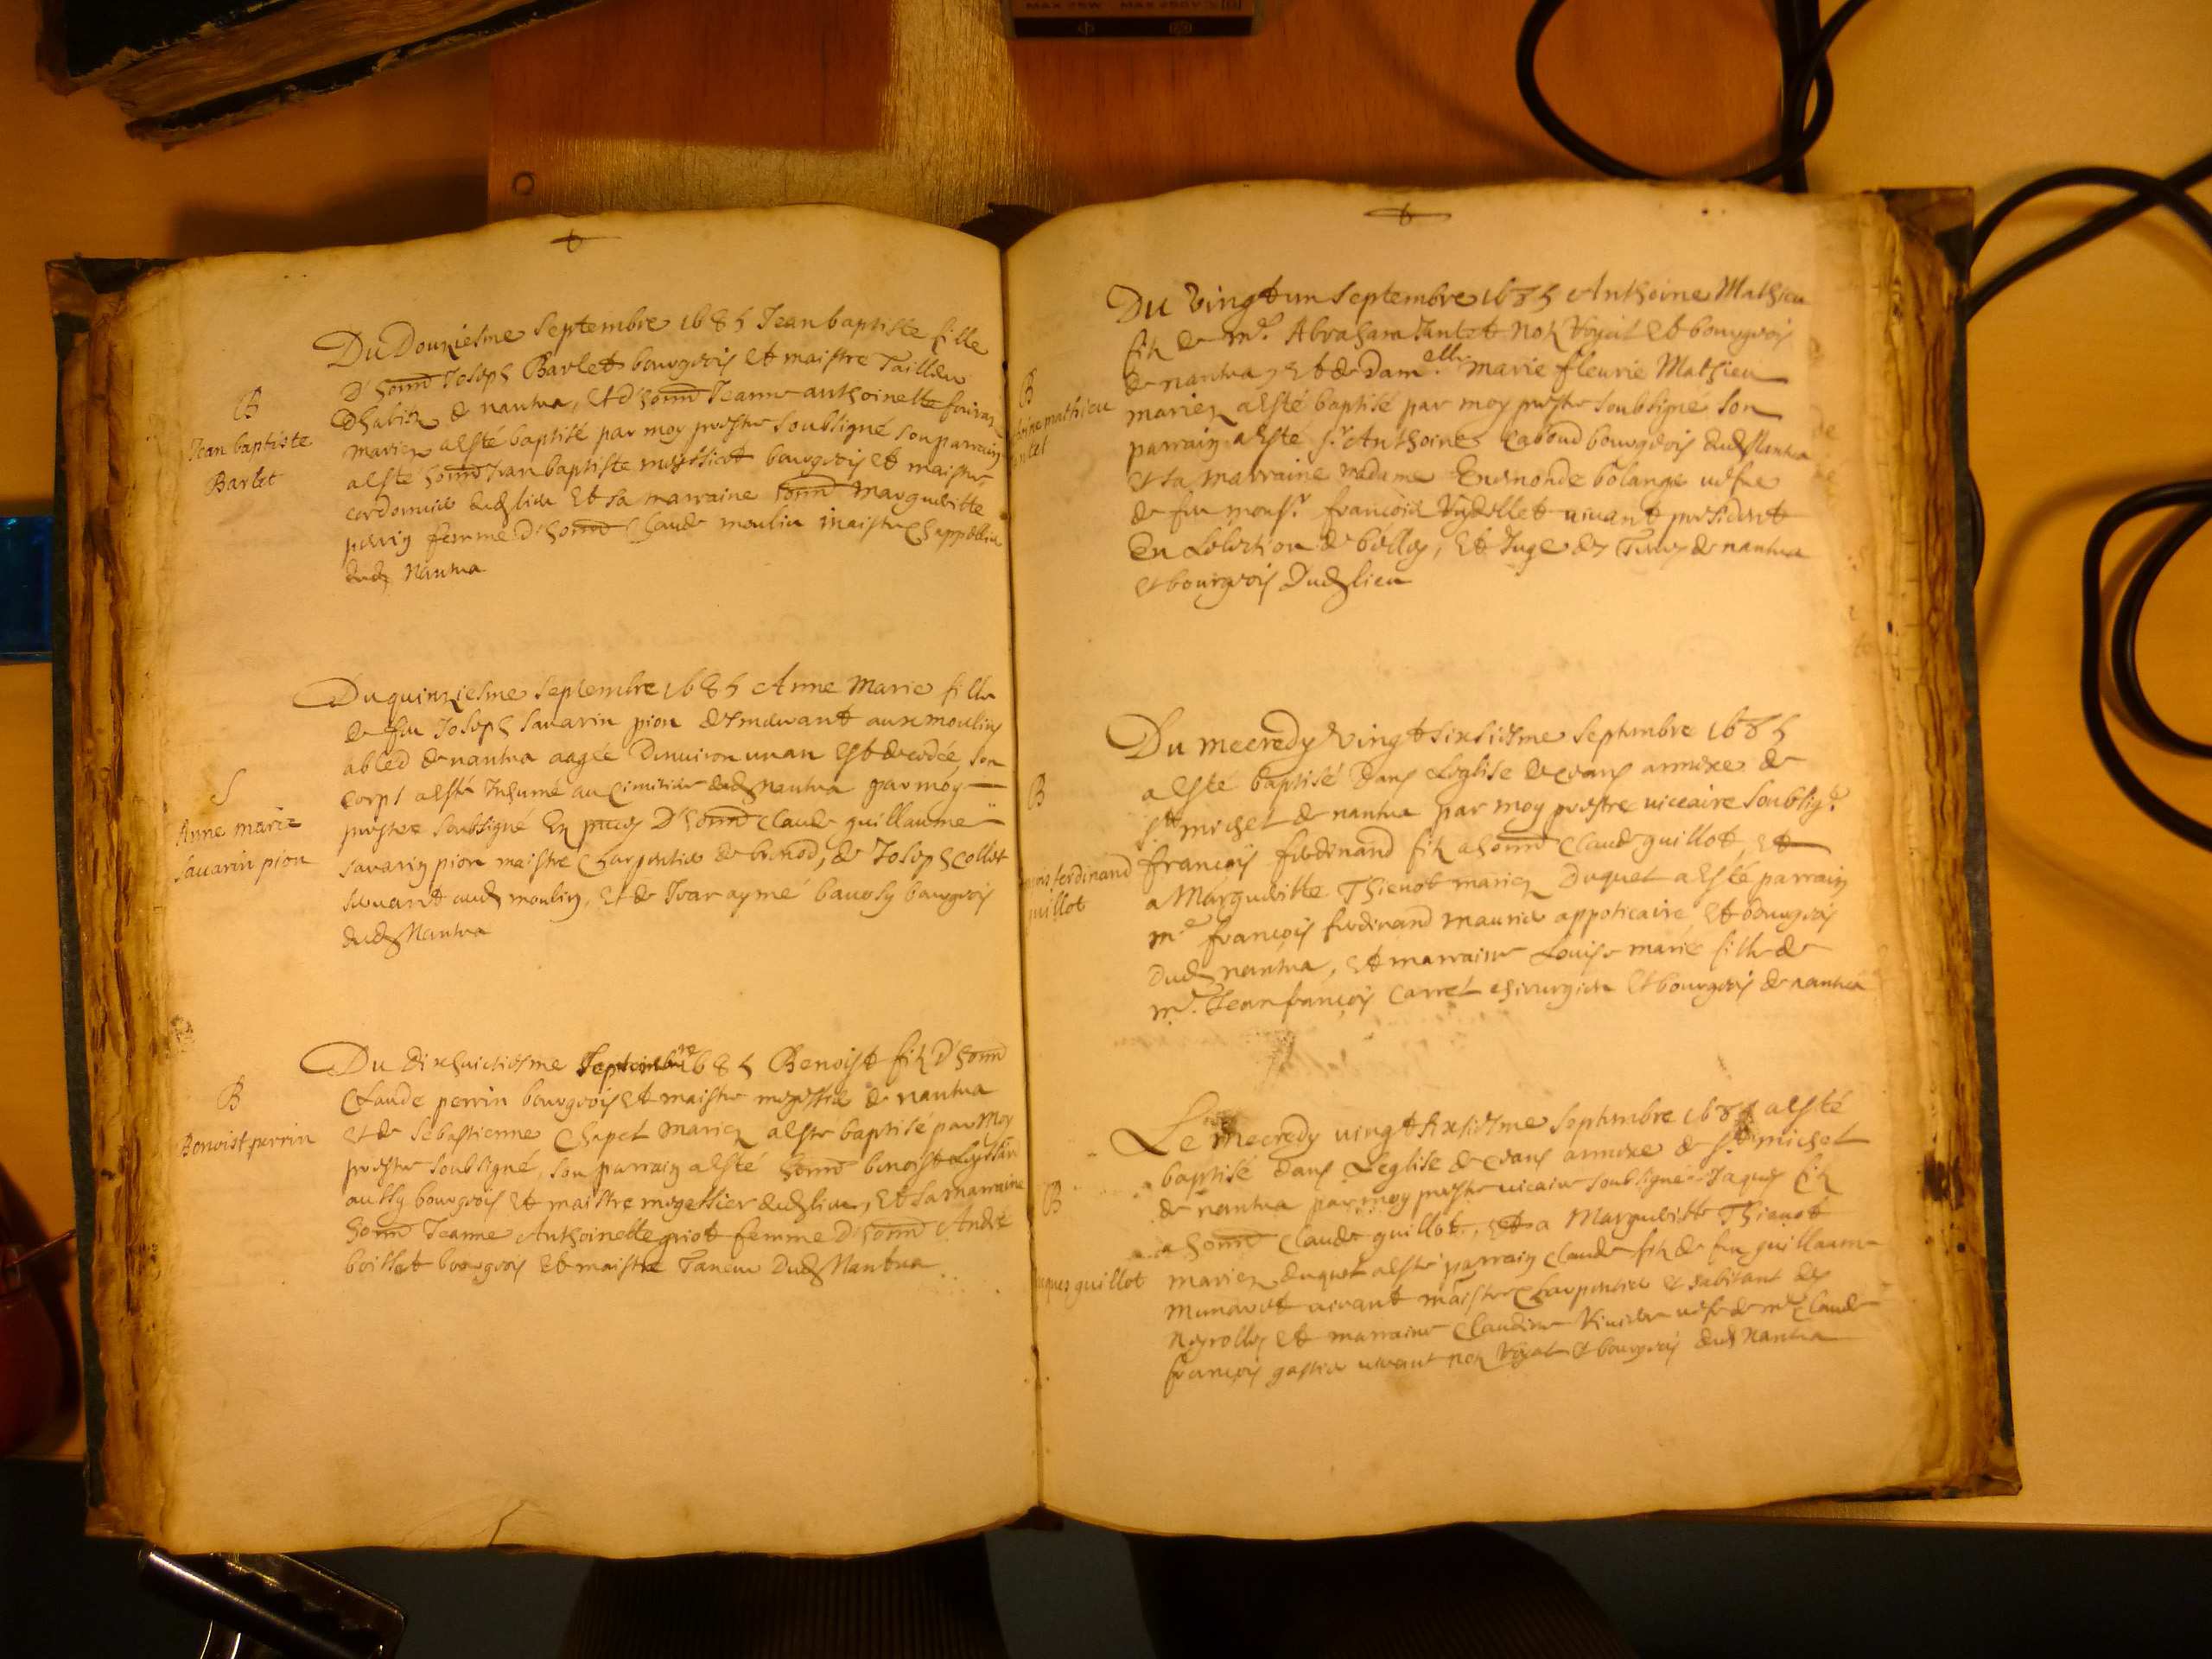 Du Douziesme Septembre 1685 Jean baptiste fille
D'honn Joseph Barlet bourgeois et maistre Tailleur
Dhabitz de nantua, et d'honn Jeanne anthoinette
mariez a esté baptisé par moy prestre soubsigné son parrain
a esté honn Jean baptiste bourgeois et maistre
cordonnier dud lieu et sa marraine honn Margueritte
perrin femme d'honn Claude moulin maistre Chappellier
dud Nantua
B
Jean baptiste
Barlet
Du quinziesme Septembre 1685 Anne Marie fille
de feu Joseph Savarin pion demeurant aux moulins
a bled de nantua aagée Denviron un an est decedée, son
corps a esté Inhumé au Cimitiere dud nantua par moy
prestre soubsigné En pnces D'honn Claude guillaume
Savarin pion maistre Charpentier de brenod, de Joseph Collet
servant aud moulin, et de Jean aymé bavosy bourgeois
dud Nantua
S
Anne marie
Savarin pion
Du dixhuictiesme Septembre 1685 Benoist filz D'honn
Claude perrin bourgeois et maistre megissier de nantua
et de Sebastienne Chapel mariez a esté baptisé par Moy
prestre soubsigné, son parrain a esté honn benoist
aussy bourgeois et maistre megissier dud lieu, et sa marraine
honn Jeanne Anthoinette griot femme D'honn André
boisset bourgeois et maistre Taneur Dud Nantua
B
Benoist perrin
Du Vingt un Septembre 1685 Anthoine Mathieu
filz de Mre Abraham Jantet Nore Royal et bourgeois
de nantua, et de Damelle marie fleurie Mathieu
mariez a esté baptisé par moy prestre soubsigné son
parrain a esté sr Anthoine Cabond bourgeois dud Nantua
et sa marraine madame Enemonde bolange vefve
de feu monsr françois vivant president
En Lelection de belley, et Juge des Terres de nantua
et bourgeois Dud lieu
B
mathieu
Du mecredy vingt sixsiesme Septembre 1685
a esté baptisé Dans Leglise de annexe de
st michel de nantua par moy prestre viccaire soubsigé
françois ferdinand filz a honn Claude guillot, et
a Margueritte Thienot mariez Duquel a esté parrain
mre françois ferdinand maurier appoticaire et bourgeois
Dud nantua, et marraine Louise marie fille de
mre Jean françois Carret chirurgien et bourgeois de nantua
B
ferdinand
guillot
Le mecredy vingt sixsiesme Septembre 1685 a esté
baptisé dans Leglise de annexe de st michel
de nantua par moy prestre vicaire soubsigné Jaques filz
a honn Claude guillot, et a Margueritte Thienot
mariez duquel a esté parrain Claude filz de feu guillaume
vivant maistre Charpentier et habitant des
Neyrolles et marraine Claudine vefve de mre Claude
françois gastier vivant nore Royal et bourgeois dud Nantua
B
guillot